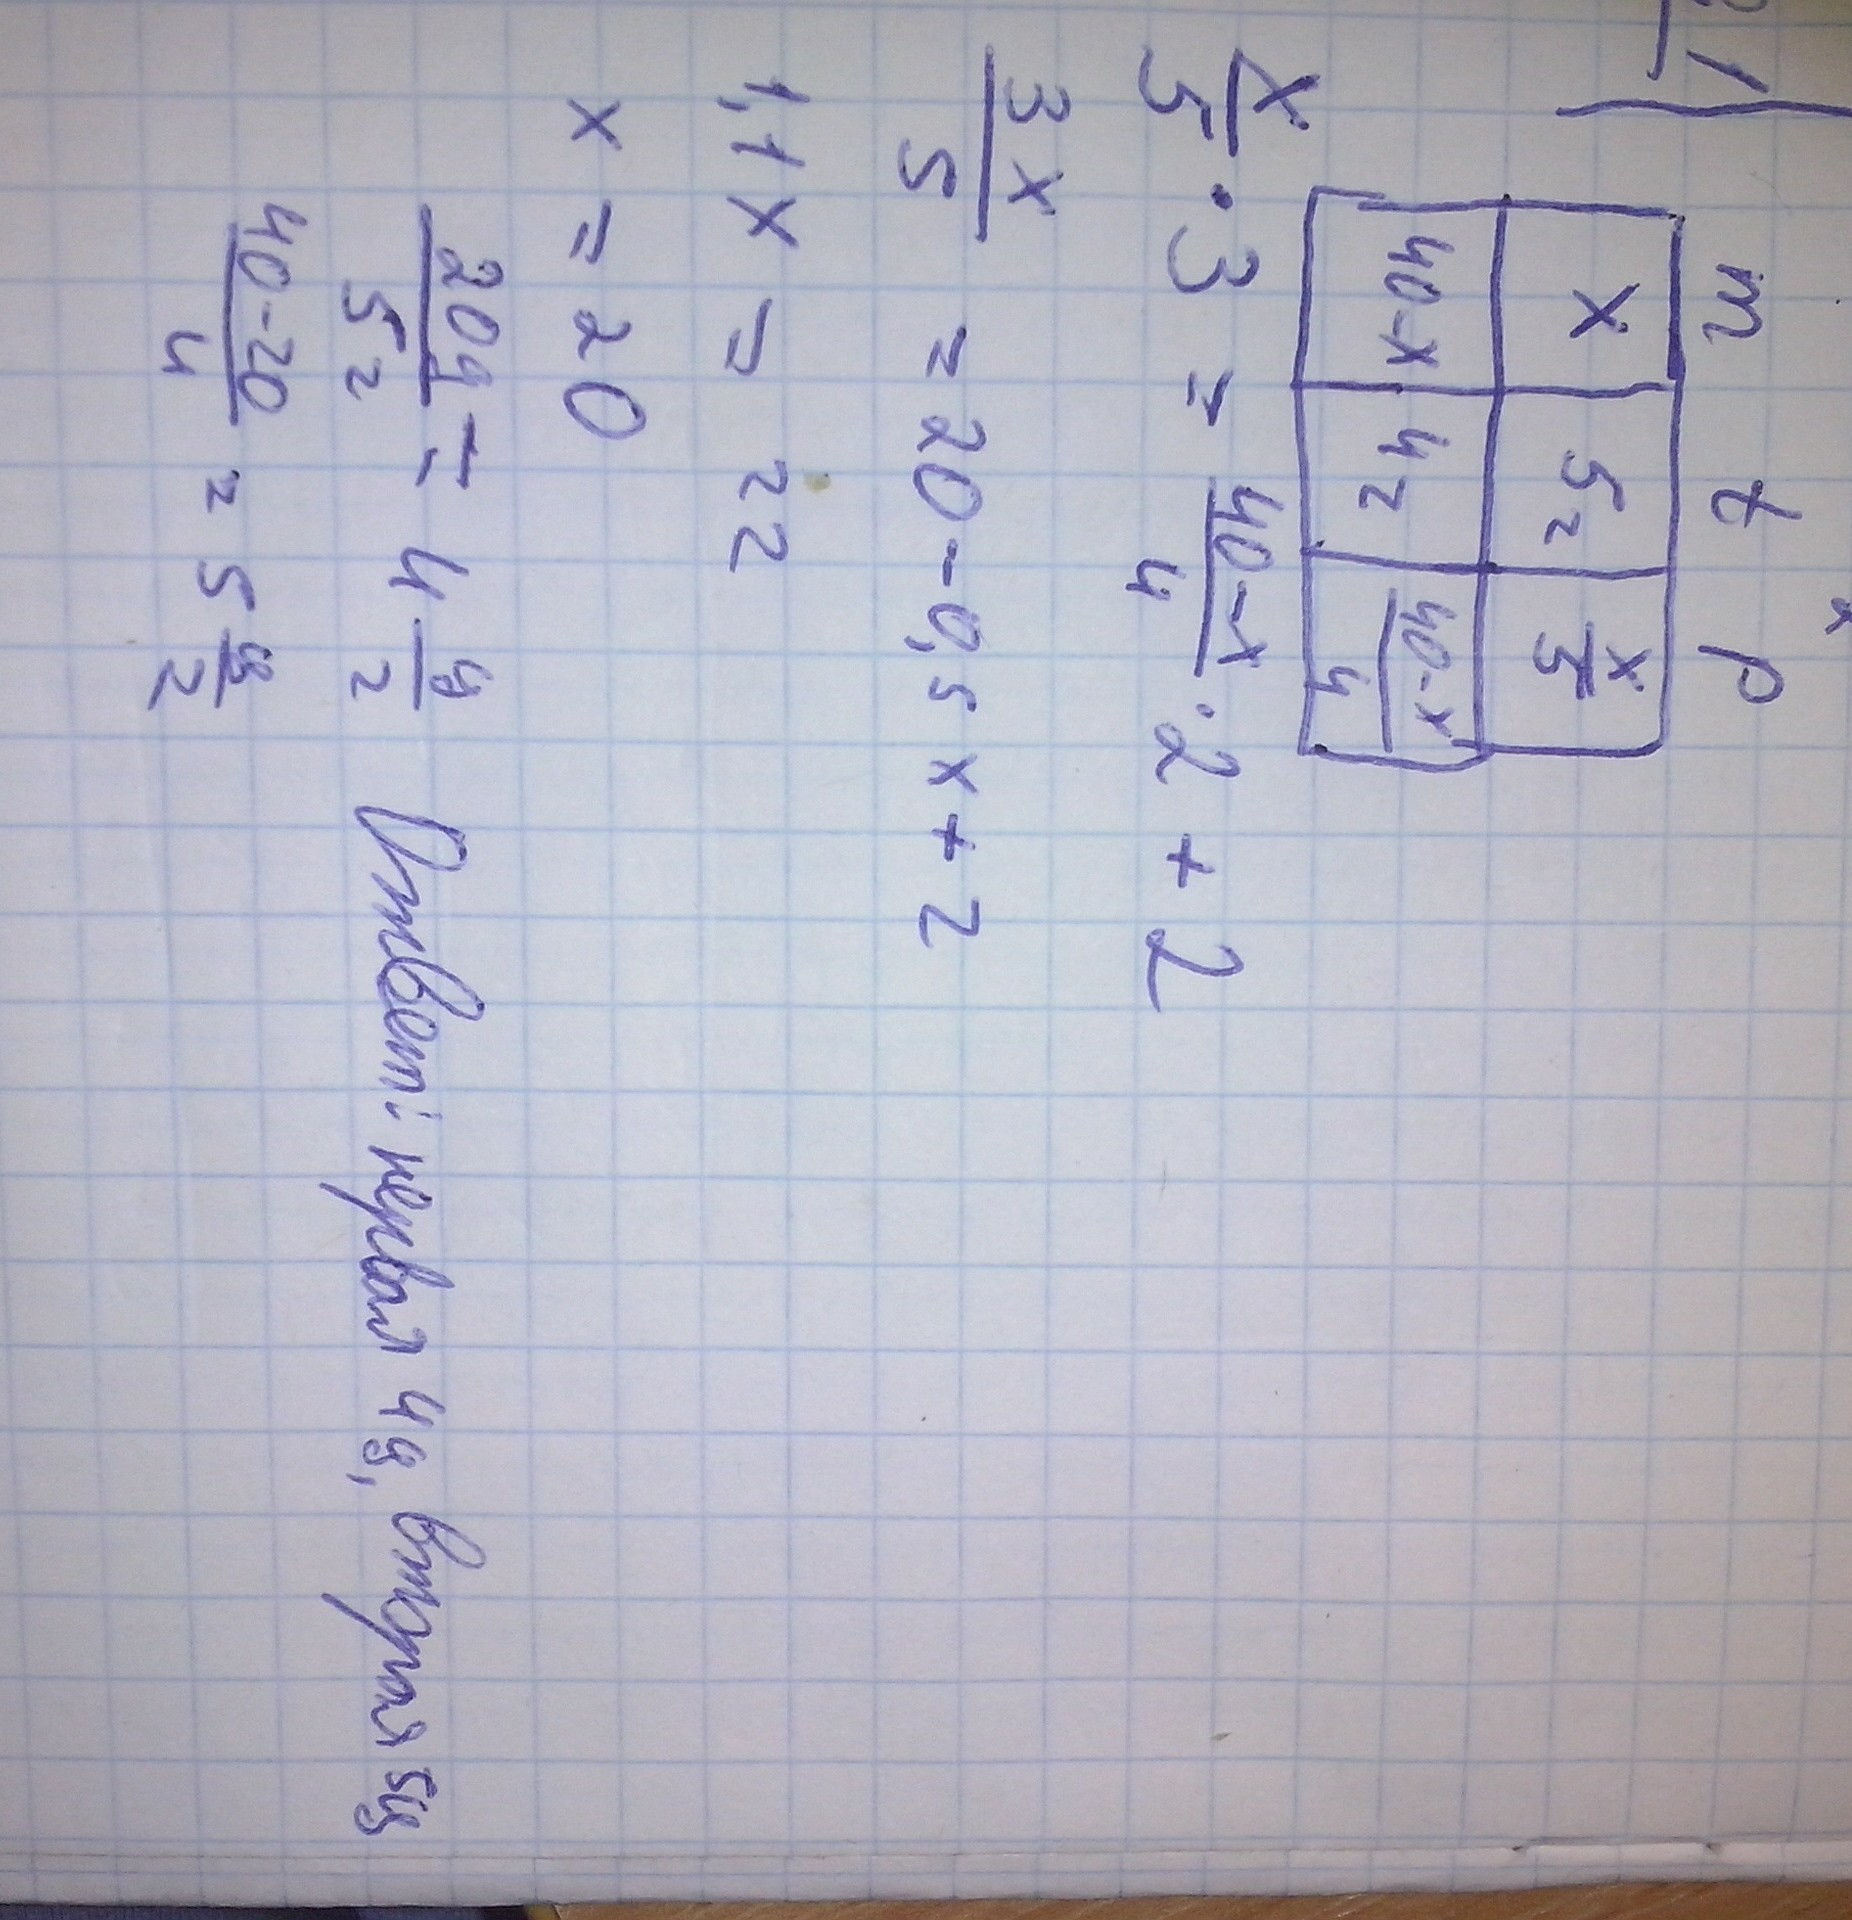 m t p
x 5г x/5
40-x 4г 40-x/4
x/5 · 3 = 40-x/4 · 2 + 2
3x/5 = 20 - 0,5x + 2
1,1x = 22
x = 20
20ц/5г = 4 ц/г
40-20/4 = 5 ц/г
Ответ: первая 4ц, вторая 5ц